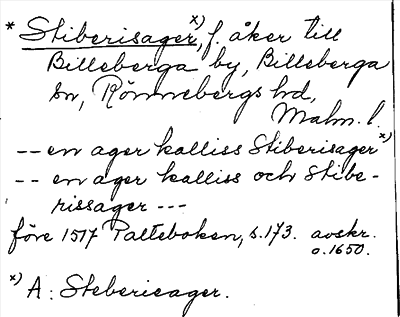 * Stiberisager x), f. åker till
Billeberga by, Billeberga
sn, Rönnebergs hd,
Malm. l.
-- en ager kalliss Stiberisager x)
-- en ager kalliss och Stibe-
rissager ---
före 1517 Palteboken, s. 173. avskr.
o. 1650.
x) A: Steberisager.